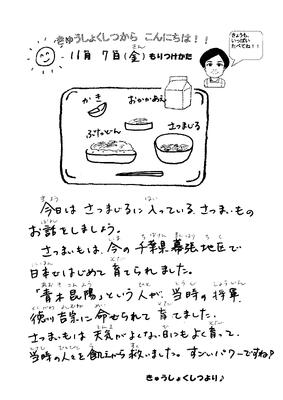 きゅうしょくしつから こんにちは!!
11月 7日(金) もりつけかた
きょうも、
いっぱい
たべてね!!
かき
おかかあえ
ぶたどん
さつまじる
今日は さつまじるに 入っている さつまいもの
お話をしましょう。
さつまいもは、今の 千葉県 幕張地区で
日本ではじめて 育てられました。
「青木昆陽」という人が、当時の 将軍
徳川吉宗に 命ぜられて 育てました。
さつまいもは 天気がよくない日にもよく育って、
当時の人々を 飢えから 救いました。すごいパワーですね?
きゅうしょくしつより♪